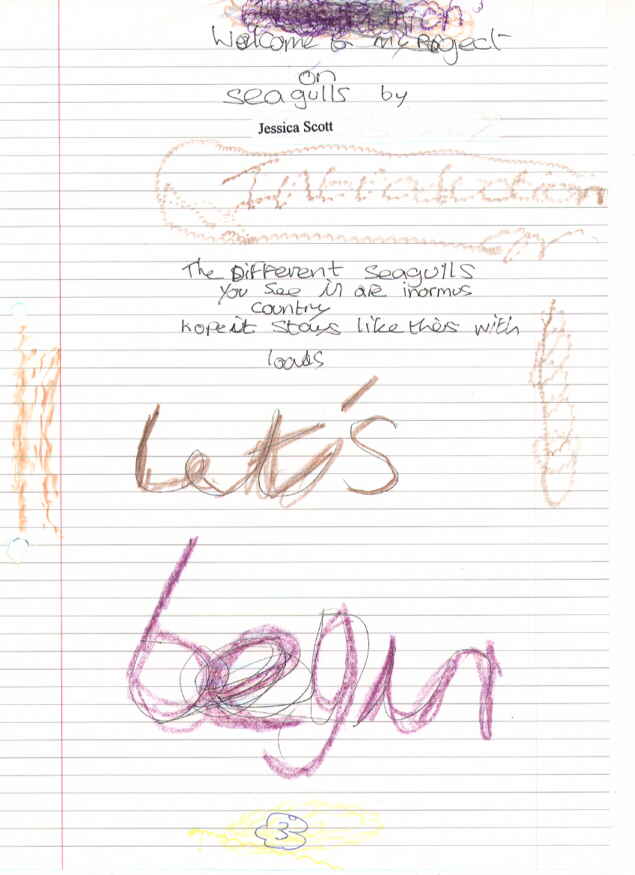 Welcome to my Project
on
seagulls by
Jessica Scott
INtroduction
The Different seagulls
You see in are inormus
country
hope it stays like this with
loads
Let's
begin
3